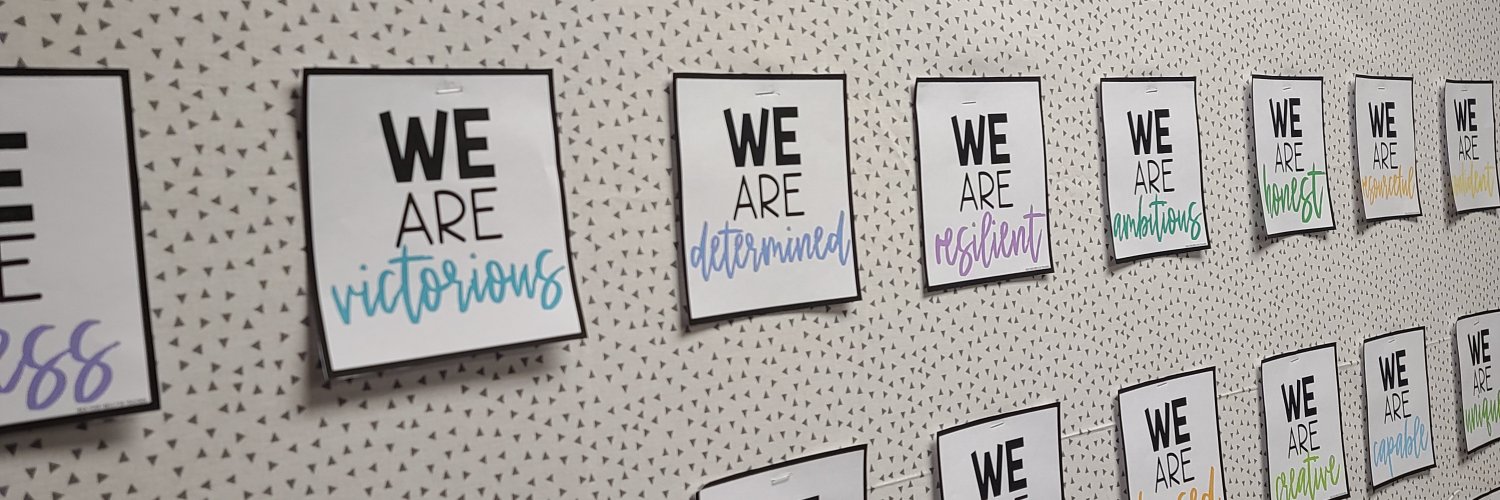 ess
WE
ARE
victorious
WE
ARE
determined
WE
ARE
resilient
WE
ARE
ambitious
WE
ARE
honest
WE
ARE
resourceful
WE
ARE
confident
WE
WE
ARE
WE
ARE
creative
WE
ARE
capable
WE
ARE
unique